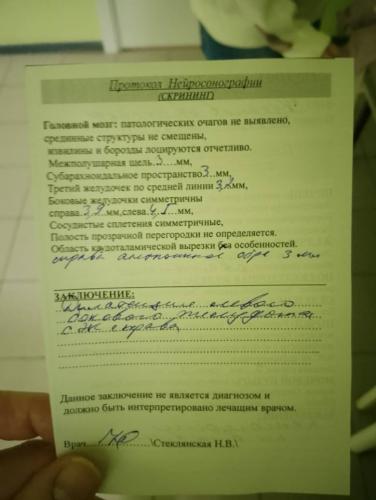 Протокол Нейросонографии
(СКРИНИНГ)
Головной мозг: патологических очагов не выявлено,
срединные структуры не смещены,
извилины и борозды лоцируются отчетливо.
Межполушарная щель 3 мм,
Субарахноидальное пространство 3 мм,
Третий желудочек по средней линии мм,
Боковые желудочки симметричны
справа 3,9 мм,слева 4,5 мм,
Сосудистые сплетения симметричные,
Полость прозрачной перегородки не определяется.
Область каудоталамической вырезки без особенностей.
справа обр 3 мм
ЗАКЛЮЧЕНИЕ:
Дилатация левого
бокового желудочка
справа
Данное заключение не является диагнозом и
должно быть интерпретировано лечащим врачом.
Врач \Стеклянская Н.В.\